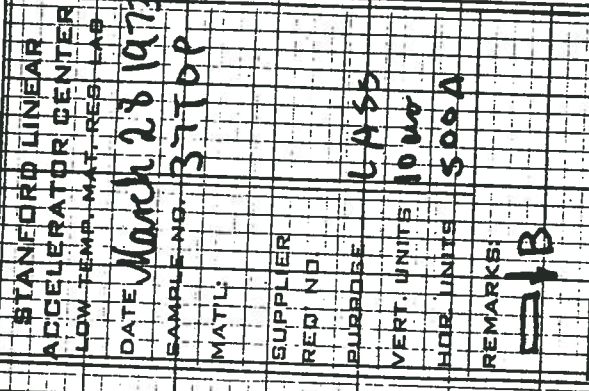 STANFORD LINEAR
ACCELERATOR CENTER
LOW TEMP. MAT. RES. LAB
DATE March 28 197
SAMPLE NO. 37TOP
MAT'L:
SUPPLIER
REQ. NO.
PURPOSE LASS
VERT. UNITS 10
HOR. UNITS 500A
REMARKS:
B